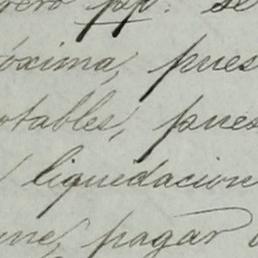 pp. se
óxima, pues
otables, pues
liquidacione
ne, pagar